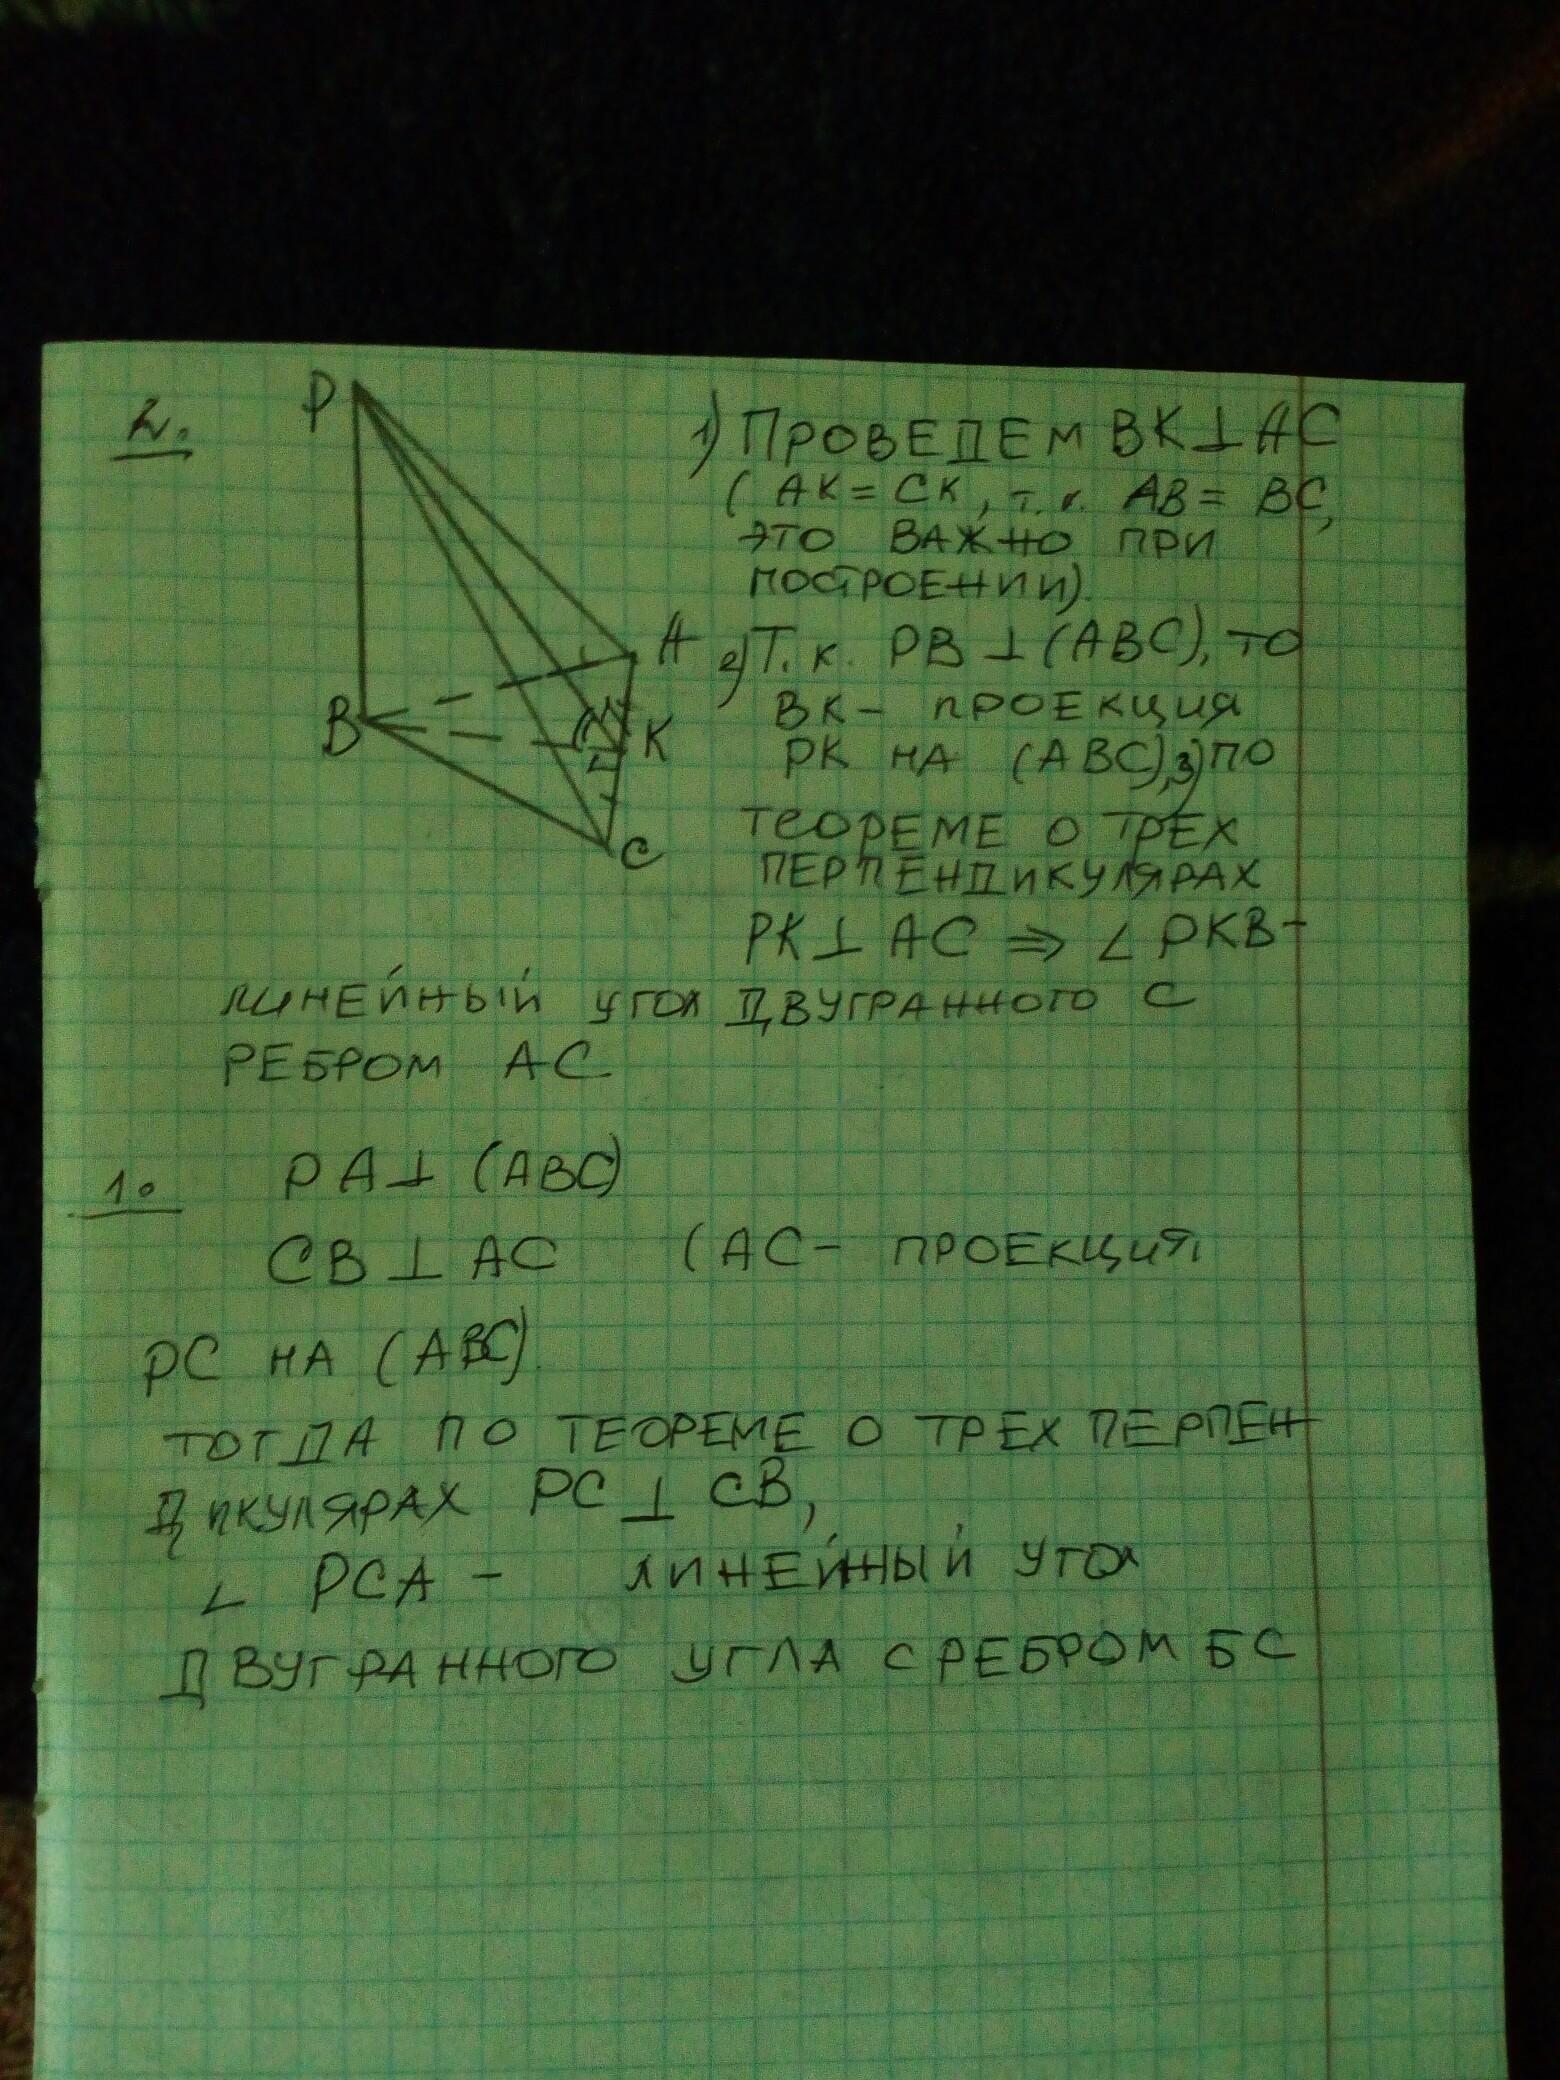 2.
P
A
B
K
C
1) ПРОВЕДЕМ BK⊥AC
( AK = CK, т.к. AB = BC,
ЭТО ВАЖНО ПРИ
ПОСТРОЕНИИ).
2) Т.к. PB ⊥ (ABC), ТО
BK – ПРОЕКЦИЯ
PK НА (ABC), 3) ПО
ТЕОРЕМЕ О ТРЕХ
ПЕРПЕНДИКУЛЯРАХ
PK ⊥ AC ⇒ ∠ PKB –
ЛИНЕЙНЫЙ УГОЛ ДВУГРАННОГО С
РЕБРОМ AC
1. PA ⊥ (ABC)
CB ⊥ AC (AC – ПРОЕКЦИЯ
PC НА (ABC).
ТОГДА ПО ТЕОРЕМЕ О ТРЕХ ПЕРПЕН
ДИКУЛЯРАХ PC ⊥ CB,
∠ PCA – ЛИНЕЙНЫЙ УГОЛ
ДВУГРАННОГО УГЛА С РЕБРОМ БС